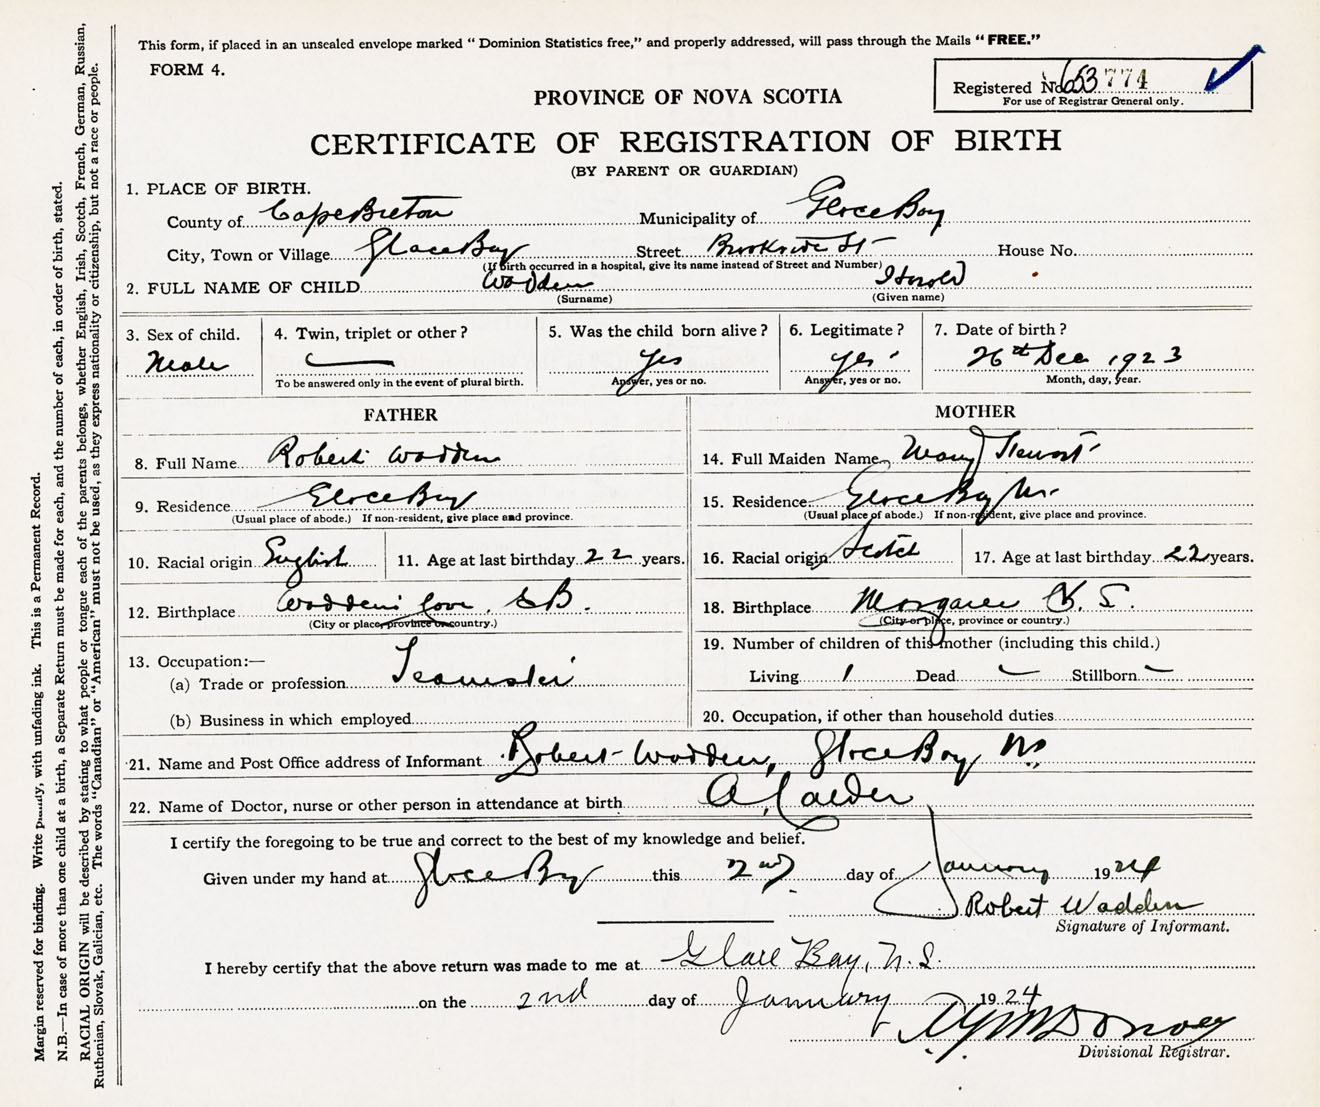 This form, if placed in an unsealed envelope marked “ Dominion Statistics free,” and properly addressed, will pass through the Mails “ FREE.”
FORM 4.
Registered No. 653774
For use of Registrar General only.
PROVINCE OF NOVA SCOTIA
CERTIFICATE OF REGISTRATION OF BIRTH
(BY PARENT OR GUARDIAN)
1. PLACE OF BIRTH.
County of Cape Breton Municipality of Glace Bay
City, Town or Village Glace Bay Street Brookside St House No.
(If birth occurred in a hospital, give its name instead of Street and Number)
2. FULL NAME OF CHILD Wadden Harold
(Surname) (Given name)
3. Sex of child. 4. Twin, triplet or other? 5. Was the child born alive? 6. Legitimate? 7. Date of birth?
Male — Yes yes 26th Dec 1923
To be answered only in the event of plural birth. Answer, yes or no. Answer, yes or no. Month, day, year.
FATHER MOTHER
8. Full Name Robert Wadden 14. Full Maiden Name Mary Stewart
9. Residence Glace Bay 15. Residence Glace Bay
(Usual place of abode.) If non-resident, give place and province. (Usual place of abode.) If non-resident, give place and province.
10. Racial origin English 11. Age at last birthday 22 years. 16. Racial origin Scotch 17. Age at last birthday 22 years.
12. Birthplace Waddens Cove, CB. 18. Birthplace Margaree
(City or place, province or country.) (City or place, province or country.)
13. Occupation:— 19. Number of children of this mother (including this child.)
(a) Trade or profession Teamster Living 1 Dead — Stillborn —
(b) Business in which employed 20. Occupation, if other than household duties
21. Name and Post Office address of Informant Robert Wadden, Glace Bay NS
22. Name of Doctor, nurse or other person in attendance at birth A. Calder
I certify the foregoing to be true and correct to the best of my knowledge and belief.
Given under my hand at Glace Bay this 2nd day of January 1924
Robert Wadden
Signature of Informant.
I hereby certify that the above return was made to me at Glace Bay, N.S.
on the 2nd day of January 1924
Divisional Registrar.
Margin reserved for binding. Write with unfading ink. This is a Permanent Record.
N.B.—In case of more than one child at a birth, a Separate Return must be made for each, and the number of each, in order of birth, stated.
RACIAL ORIGIN will be described by stating to what people or tongue each of the parents belongs, whether English, Irish, Scotch, French, German, Russian,
Ruthenian, Slovak, Galician, etc. The words “Canadian” or “American” must not be used, as they express nationality or citizenship, but not a race or people.